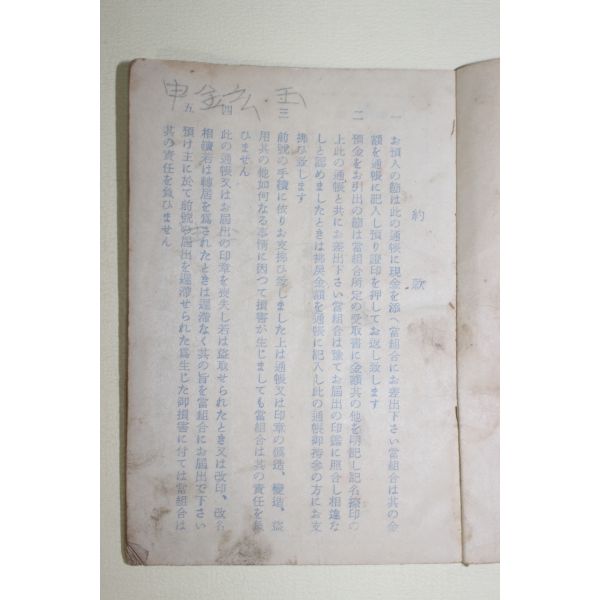 約款
一 お預入の節は此の通帳に現金を添へ當組合にお差出下さい當組合は其の金
額を通帳に記入し預り證印を押してお返し致します
二 預金をお引出の節は當組合所定の受取書に金額其の他を明記し記名捺印の
上此の通帳と共にお差出下さい當組合は豫てお届出の印鑑に照合し相違な
しと認めましたときは拂戻金額を通帳に記入し此の通帳御持參の方にお支
拂ひ致します
三 前號の手續に依りお支拂ひ致しました上は通帳又は印章の僞造、變造、盜
用其の他如何なる事情に因つて損害が生じましても當組合は其の責任を負
ひません
四 此の通帳又はお届出の印章を喪失し若は盜取せられたとき又は改印、改名
相續若は轉居を爲されたときは遲滯なく其の旨を當組合にお届出で下さい
五 預け主に於て前號の届出を遲滯せられた爲生じた御損害に付ては當組合は
其の責任を負ひません